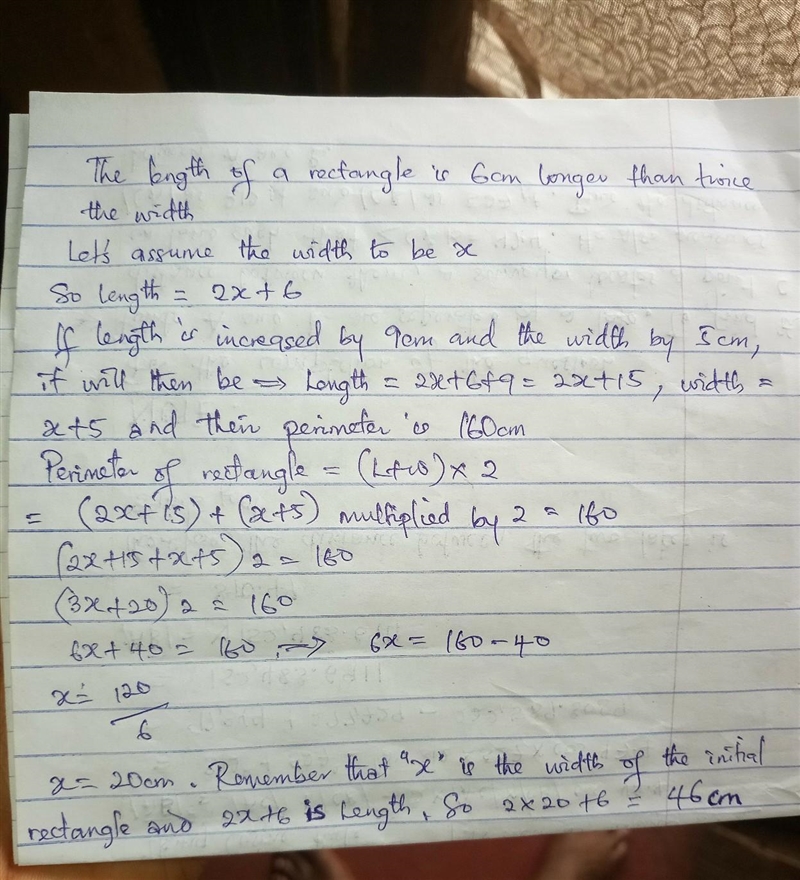 The length of a rectangle is 6cm longer than twice
the width
Let's assume the width to be x
So length = 2x+6
If length is increased by 9cm and the width by 5cm,
it will then be ⇒ Length = 2x+6+9 = 2x+15, width =
x+5 and their perimeter is 160cm
Perimeter of rectangle = (L+w) × 2
= (2x+15) + (x+5) multiplied by 2 = 160
(2x+15+x+5) 2 = 160
(3x+20) 2 = 160
6x+40 = 160 ⇒ 6x = 160-40
x = 120/6
x = 20cm. Remember that "x" is the width of the initial
rectangle and 2x+6 is length, So 2×20+6 = 46cm